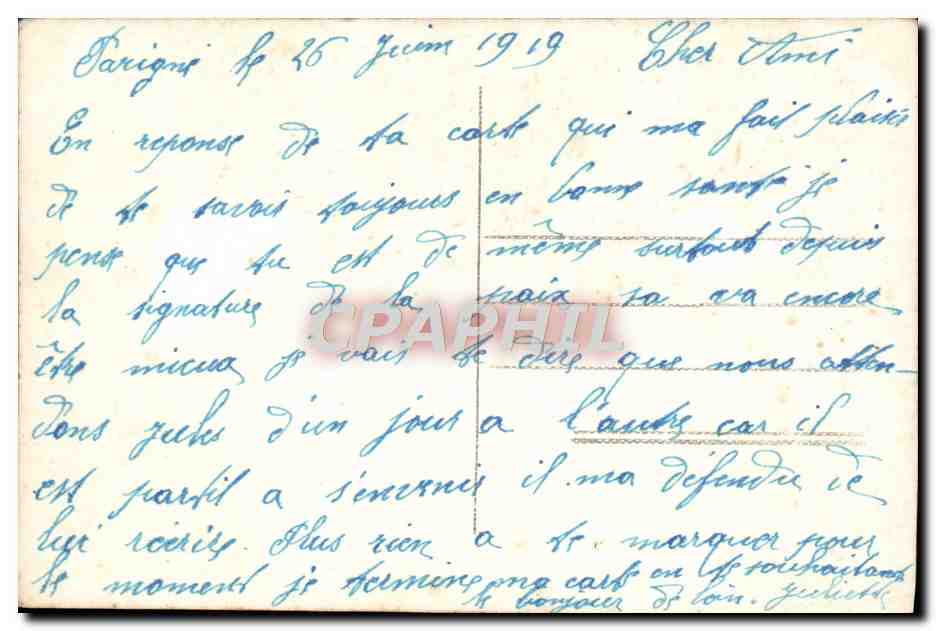 Parigné le 26 Juin 1919 Cher Ami
En reponse de ta carte qui ma fait plaisir
de te savoir toujours en bonne sante je
pense que tu est de même surtout depuis
la signature de la paix sa va encore
être mieux je vais te dire que nous atten-
dons Jules d'un jour a l'autre car il
est partil a il ma défendu de
lui réécrire. Plus rien a te marquer pour
le moment je termine ma carte en te souhaitant
le bonjour de loin. Juliette
CPAPHIL